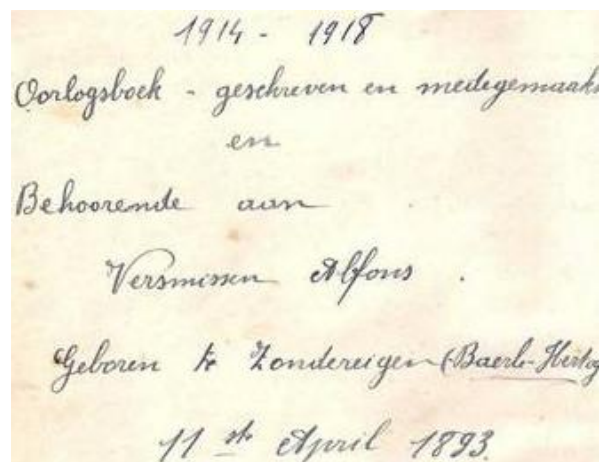 1914 - 1918
Oorlogsboek - geschreven en medegemaakt
en
Behoorende aan
Versmissen Alfons .
Geboren te Zondereigen (Baerle-Hertog
11 ste April 1893.